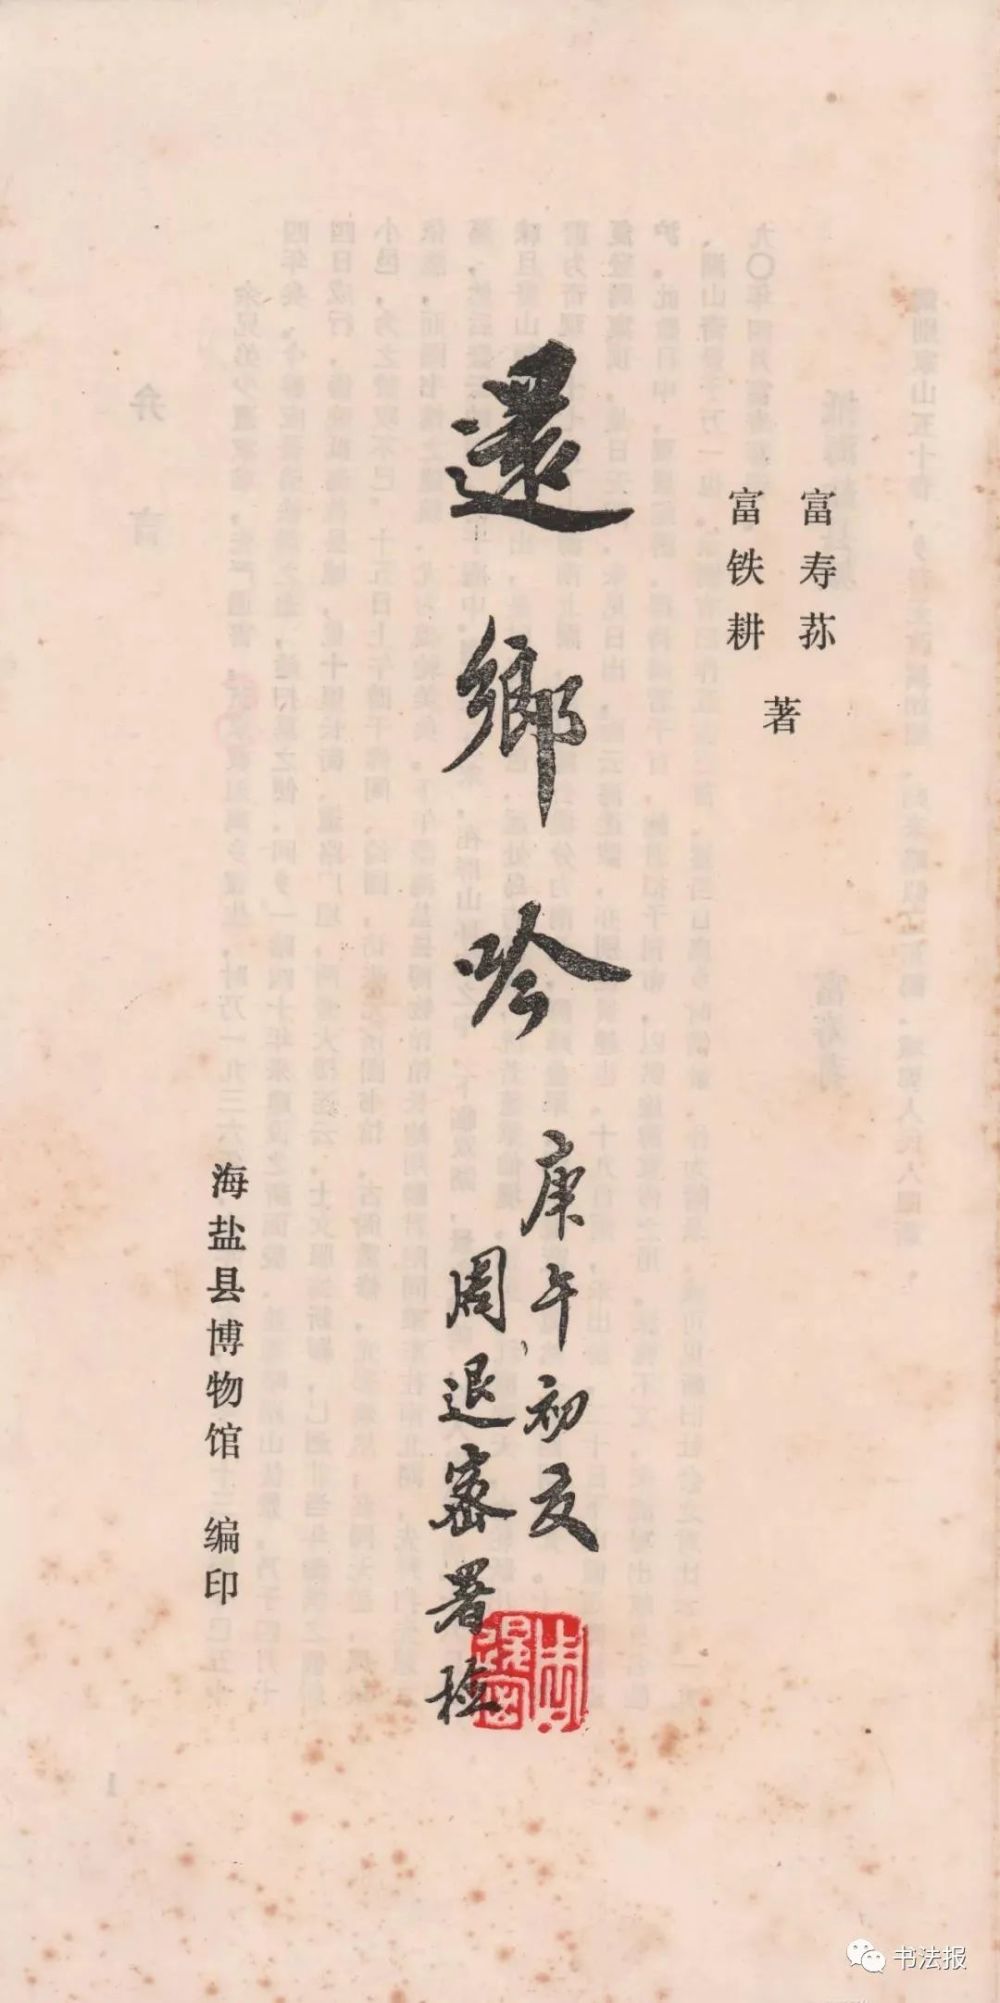 富寿荪
富铁耕
著
還鄉吟
庚午初夏
周退密署檢
海盐县博物馆 编印
书法报